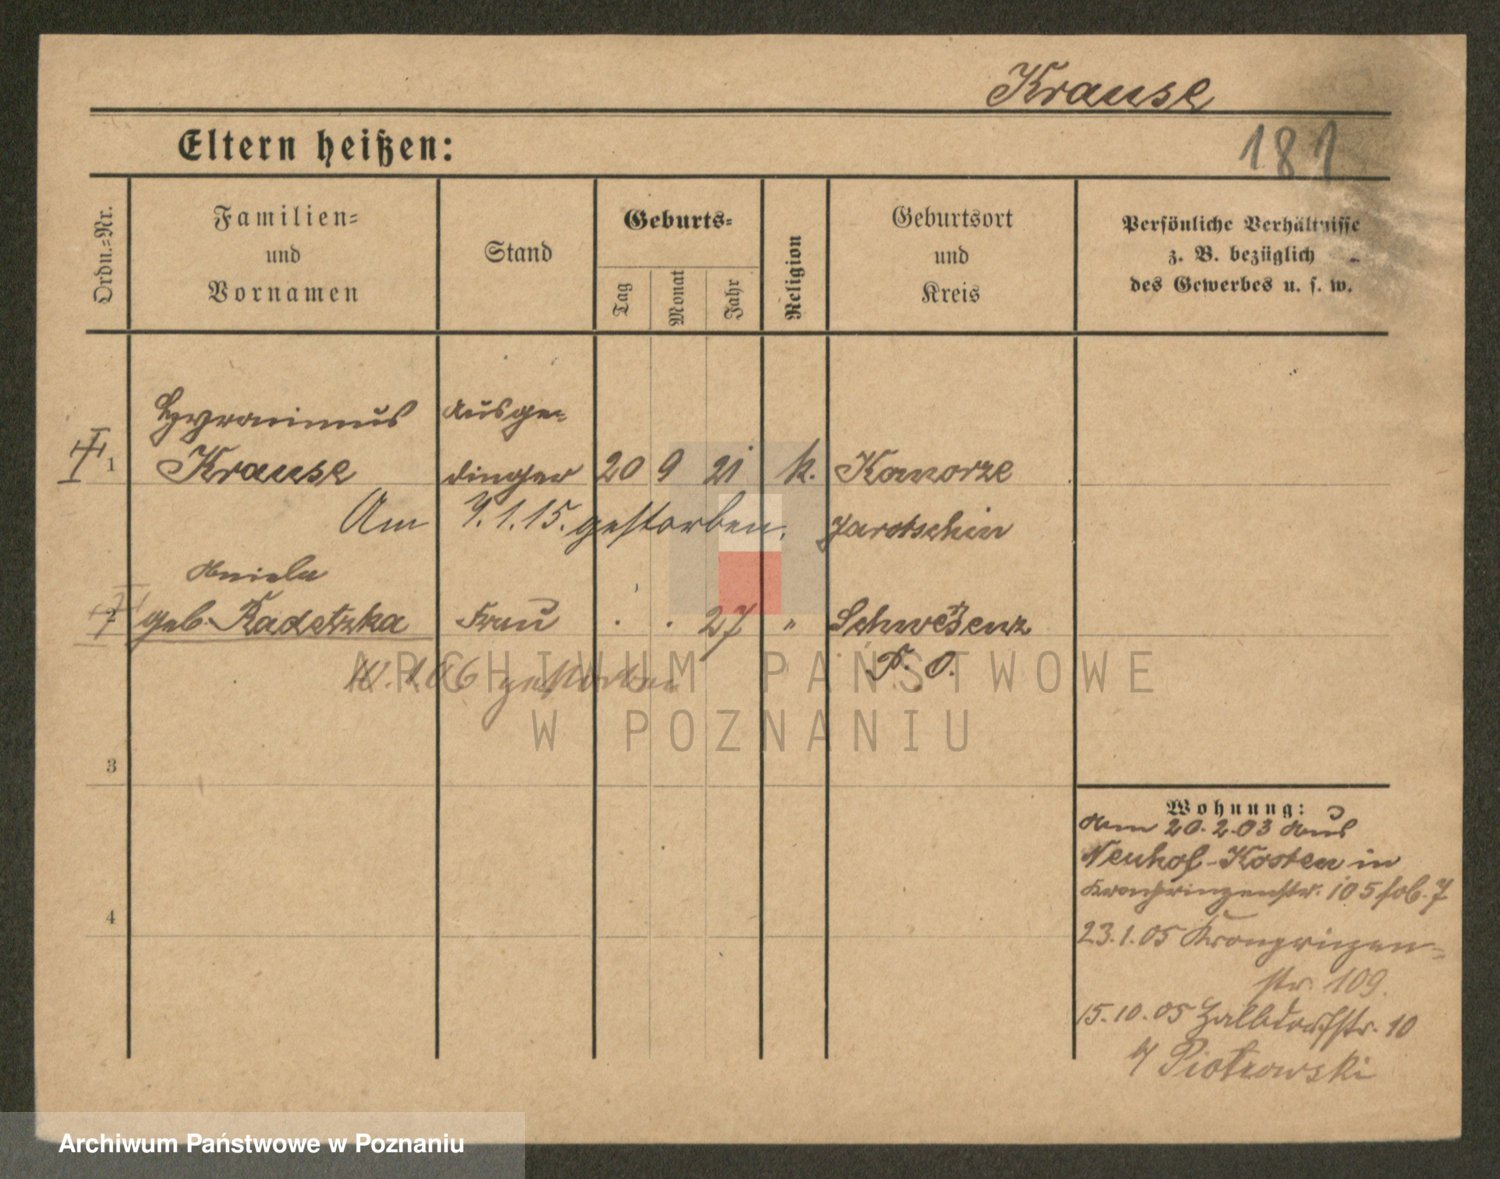 Krause
181
Eltern heißen:
Ordn.-Nr.
Familien-
und
Vornamen
Stand
Geburts-
Tag
Monat
Jahr
Religion
Geburtsort
und
Kreis
Persönliche Verhältnisse
z. B. bezüglich
des Gewerbes u. s. w.
Hyronimus Ausge-
1 Krause dinger 20 9 21 k. Komorze
Am 7.1.15. gestorben. Jarotschin
Aniela
2 geb. Radetzka Frau . . 27 " Schwersenz
P. O.
1.06 gestorben
3
4
Wohnung:
Am 20.2.03 aus
Neuhof-Kosten in
Kronprinzenstr. 105
23.1.05 Kronprinzen-
str. 109.
15.10.05 Halbdorfstr. 10
b/ Piotrowski
ARCHIWUM PAŃSTWOWE
W POZNANIU
Archiwum Państwowe w Poznaniu